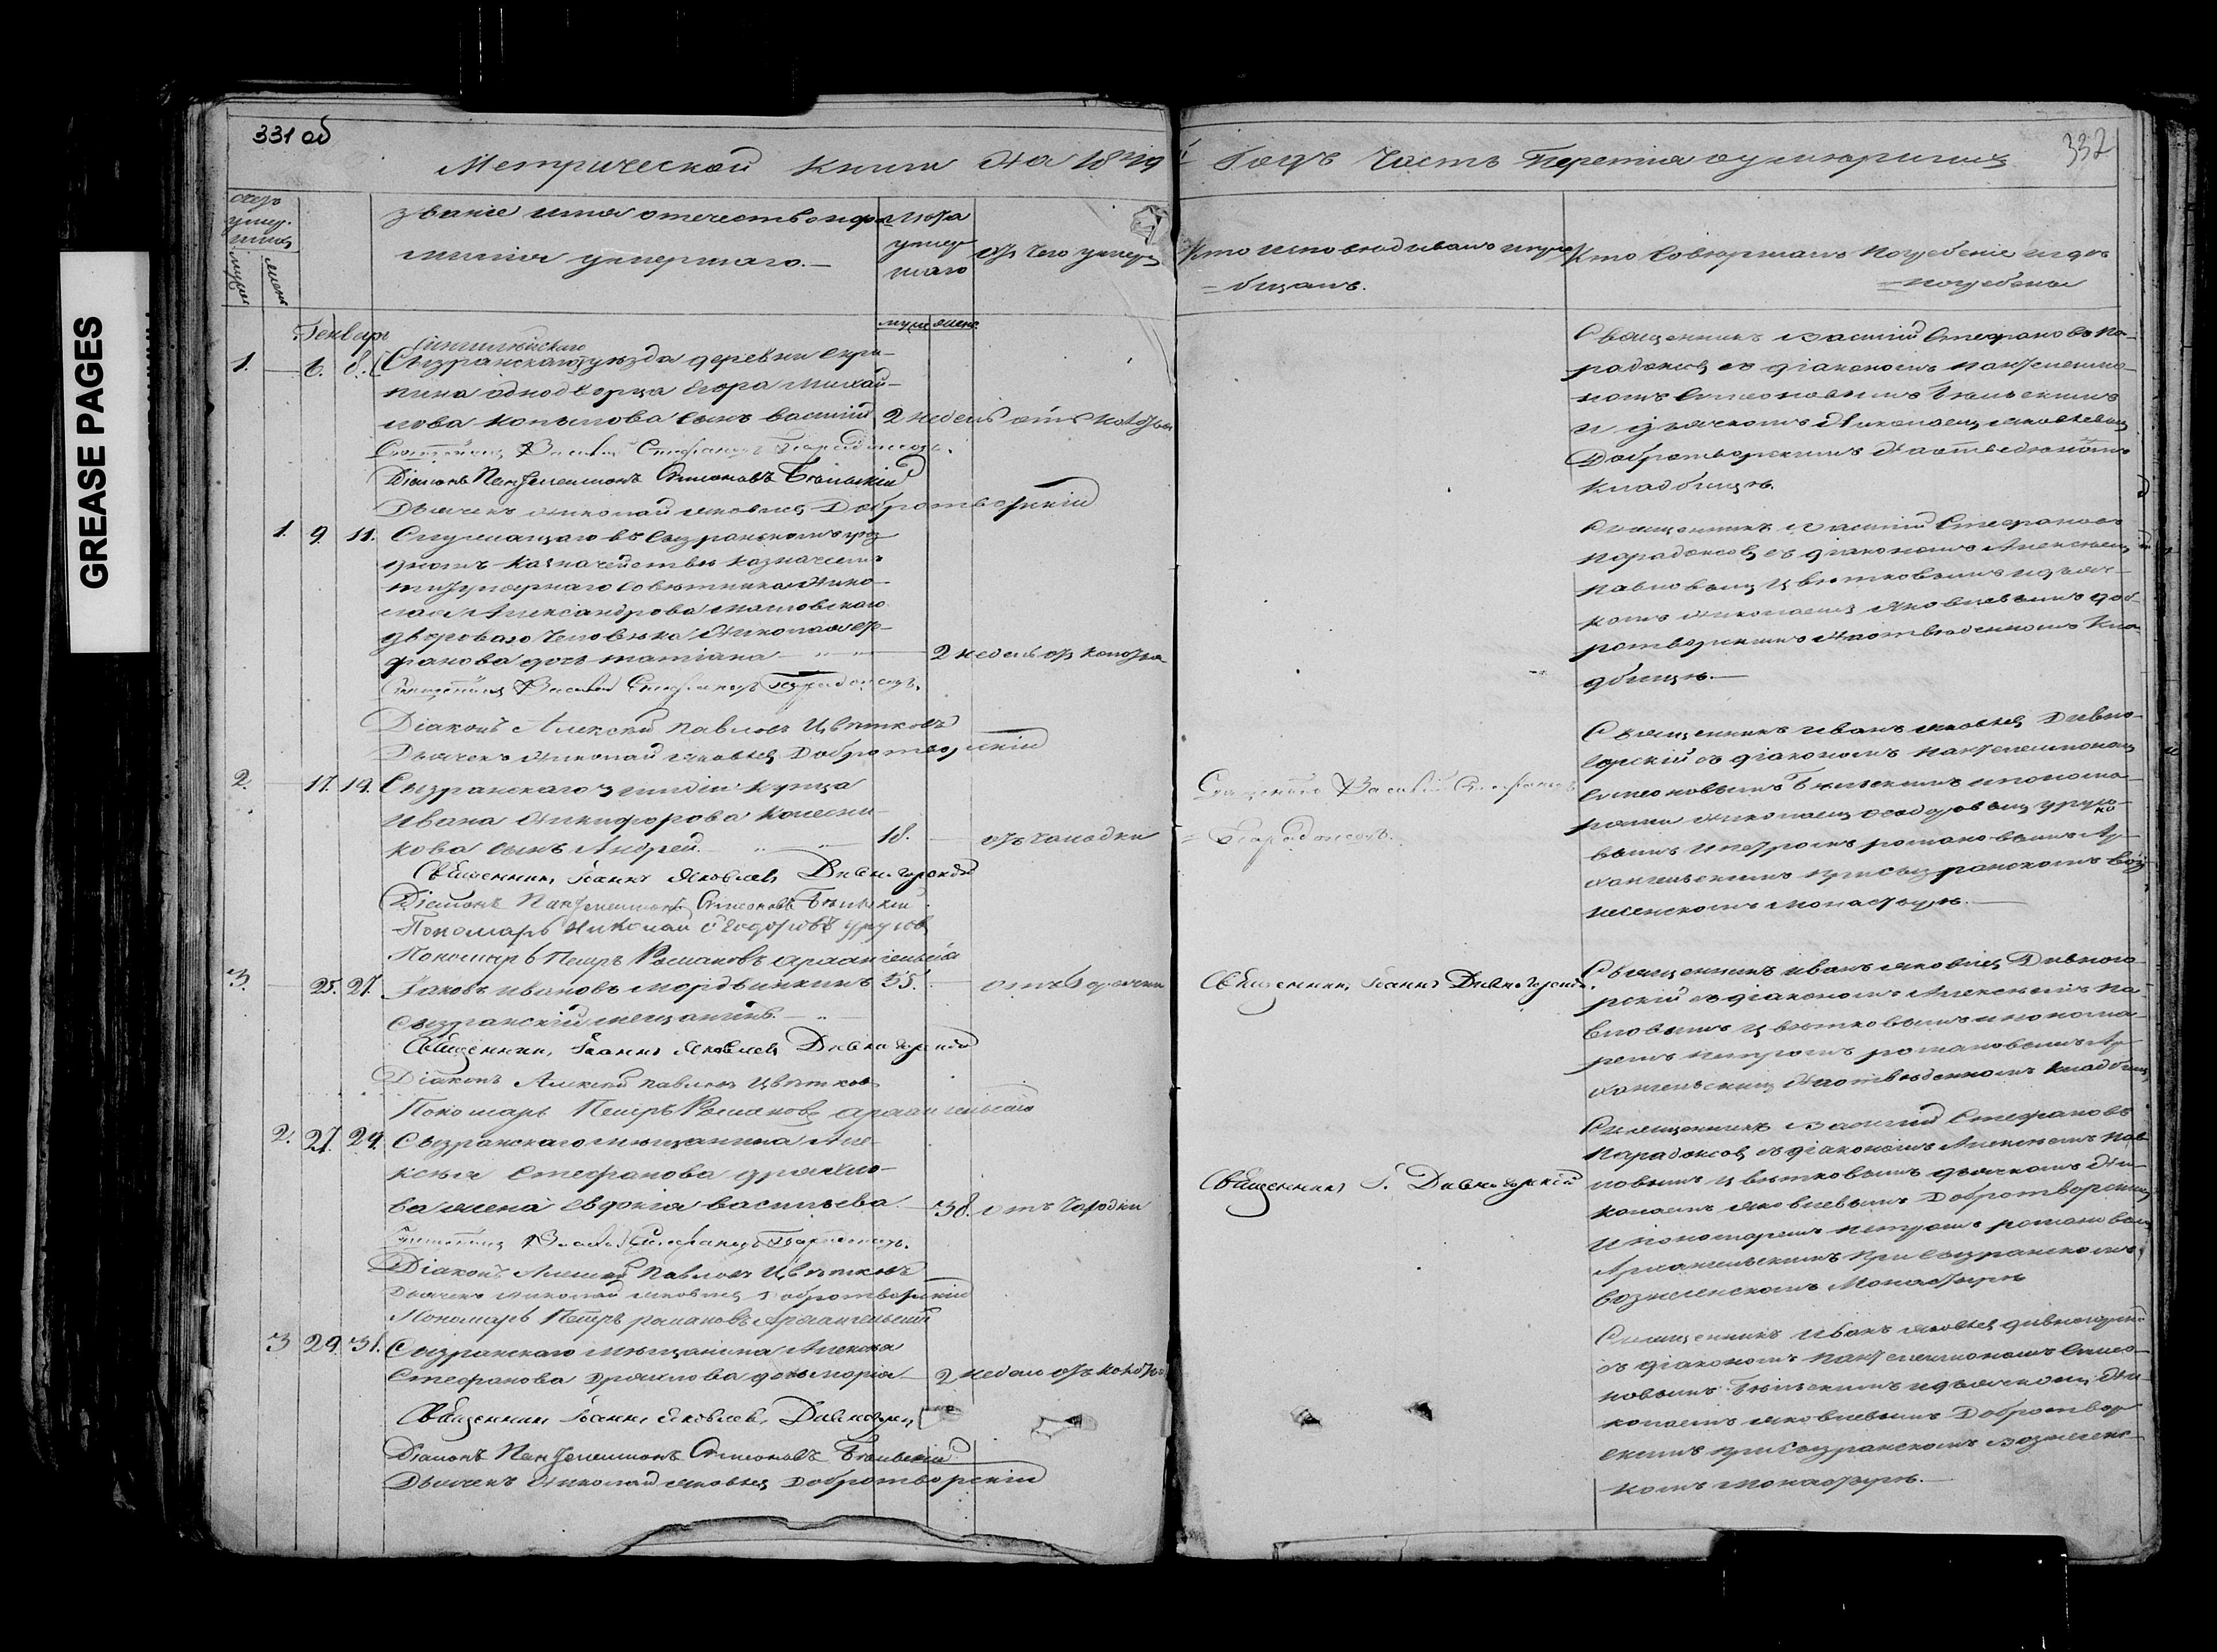 GREASE PAGES
331 об
332
Метрической книги на 1849
й Годъ Часть Третія о умершихъ
счетъ умер-
шихъ
мужес
женс
званіе имя отечество и фа-
милія умершаго.
лѣта
умер-
шаго
отъ чего умеръ
кто исповѣдывалъ и прі-
общалъ.
кто совершалъ погребеніе и гдѣ
погребены
муж женс
Генварь
1. 6. 8. Сызранскаго уѣзда деревни
однодворца Егора Михай-
лова Копылова сынъ василій 2 недель отъ коклюш
Священникъ Василій Стефановъ Парадоксовъ.
Діаконъ Пантелеимонъ Симеоновъ
Дьячекъ Николай Яковлевъ Добротворскій
Священникъ Василій Стефановъ Па-
радоксовъ съ діакономъ Пантелеимо-
номъ Симеоновымъ
и дьячкомъ Николаемъ Яковлевым
Добротворскимъ На отведенномъ
кладбищѣ.
1. 9. 11. Служащаго въ Сызранскомъ уѣз-
дномъ казначействѣ казначеемъ
титулярнаго совѣтника Нико-
лая Александрова
двороваго человѣка Николая
дочь татіана 2 недель отъ
Священникъ Василій Стефановъ Парадоксовъ.
Діаконъ Алексѣй Павловъ Цвѣтковъ
Дьячекъ Николай Яковлевъ Добротворскій
Священникъ Василій Стефановъ
Парадоксовъ съ діакономъ Алексѣемъ
Павловымъ Цвѣтковымъ и дьяч-
комъ Николаемъ Яковлевымъ Доб-
ротворскимъ На отведенномъ кла-
дбищѣ.
2. 17. 19. Сызранскаго 3 гильдіи купца
Ивана Никифорова
кова сынъ Андрей 18. отъ чахотки
Священникъ Іоаннъ Яковлевъ Дивногорскій
Діаконъ Пантелеимонъ Симеоновъ
Пономарь Николай Ѳеодоровъ
Пономарь Петръ Романовъ Архангельскій
Священникъ Василій Стефановъ
Парадоксовъ.
Священникъ Иванъ Яковлев Дивно-
горскій съ діакономъ Пантелеимоном
Симеоновымъ и понома-
рями Николаемъ Ѳеодоровым
и Петромъ Романовымъ Ар-
хангельскимъ при Сызранскомъ Воз-
несенскомъ монастырѣ.
3. 25. 27. Іаковъ Ивановъ Мордвинкинъ 55. отъ горячки
Сызранскій мещанинъ.
Священникъ Іоаннъ Яковлевъ Дивногорскій
Діаконъ Алексѣй Павловъ Цвѣтков
Пономарь Петръ Романовъ Архангельскій
Священникъ Іоаннъ Дивногорскій.
Священникъ Иванъ Яковлевъ Дивного-
рскій съ діакономъ Алексѣемъ Па-
вловымъ Цвѣтковымъ и понома-
ремъ Петромъ Романовымъ Ар-
хангельскимъ На отведенномъ кладбищ
2. 27. 29. Сызранскаго мѣщанина Але-
ксѣя Стефанова Дряхло-
ва жена Евдокія васильева 38. отъ
Священникъ Василій Стефановъ Парадоксовъ.
Діаконъ Алексѣй Павловъ Цвѣтковъ
Дьячекъ Николай Яковлевъ Добротворскій
Пономарь Петръ Романовъ Архангельскій
Священникъ І. Дивногорскій
Священникъ Василій Стефановъ
Парадоксов съ діакономъ Алексѣемъ Пав-
ловымъ Цвѣтковымъ дьячкомъ Ни-
колаемъ Яковлевымъ Добротворским
и пономаремъ Петромъ Романовым
Архангельскимъ при Сызранскомъ
вознесенскомъ Монастырѣ
3 29. 31. Сызранскаго мѣщанина Алексѣя
Стефанова Дряхлова дочь марія 2 недели отъ
Священникъ Іоаннъ Яковлевъ Дивногорск
Діаконъ Пантелеимонъ Симеоновъ
Дьячекъ Николай Яковлевъ Добротворскій
Священникъ Иванъ Яковлев Дивногорскій
съ діакономъ Пантелеимономъ Симео-
новымъ и дьячкомъ Ни-
колаемъ Яковлевымъ Добротвор-
скимъ при Сызранскомъ вознесенс-
комъ монастырѣ.